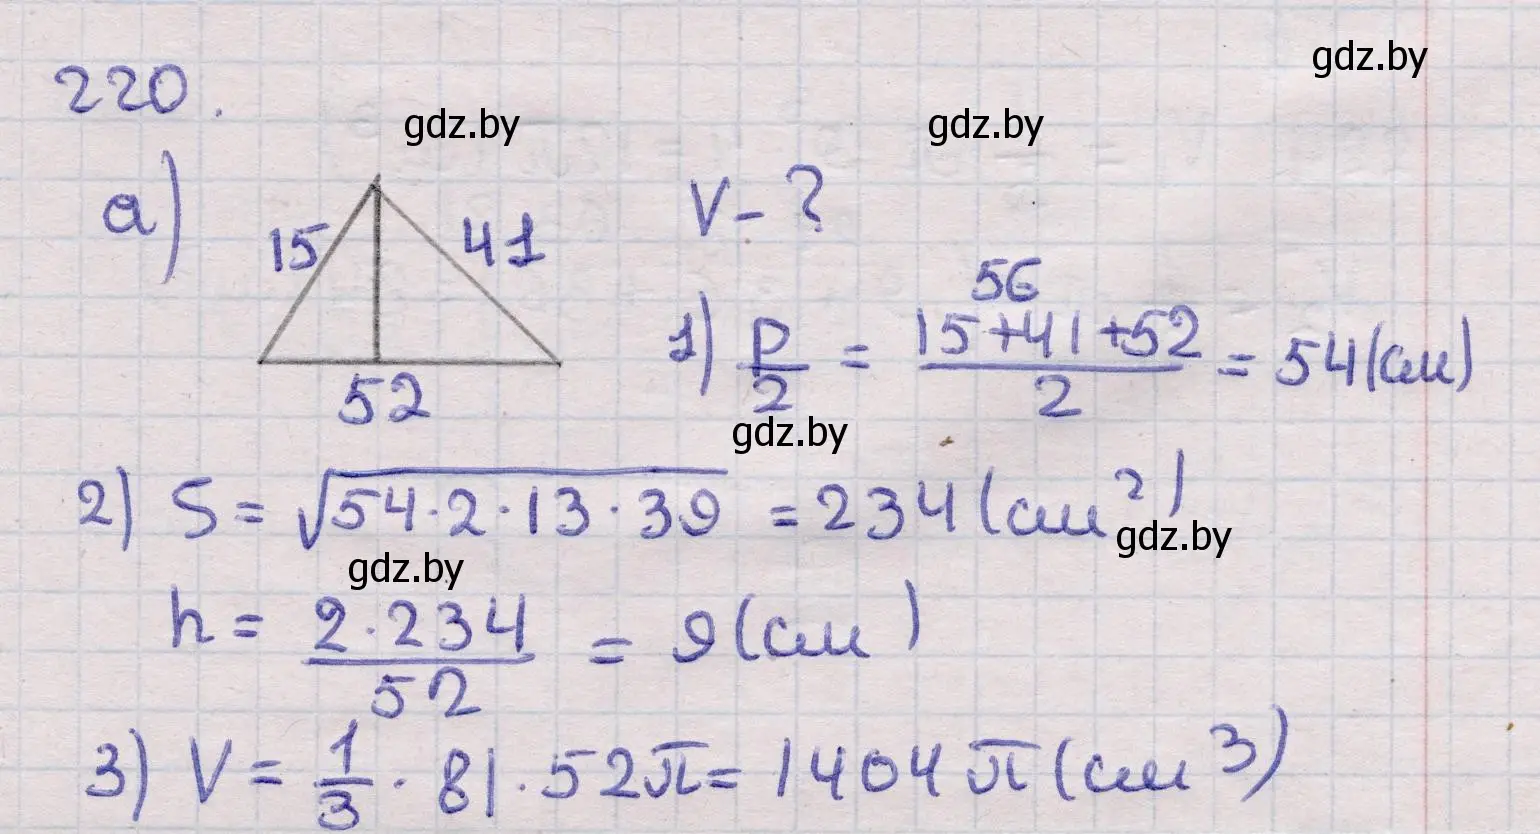 gdz.by
220.
gdz.by gdz.by
а) 15 41 52
V - ?
1) p/2 = (15+41+52)/2 = 54 (см)
56
gdz.by
2) S = √54·2·13·39 = 234 (см²)
gdz.by
gdz.by
h = 2·234/52 = 9 (см)
3) V = 1/3 · 81 · 52π = 1404π (см³)